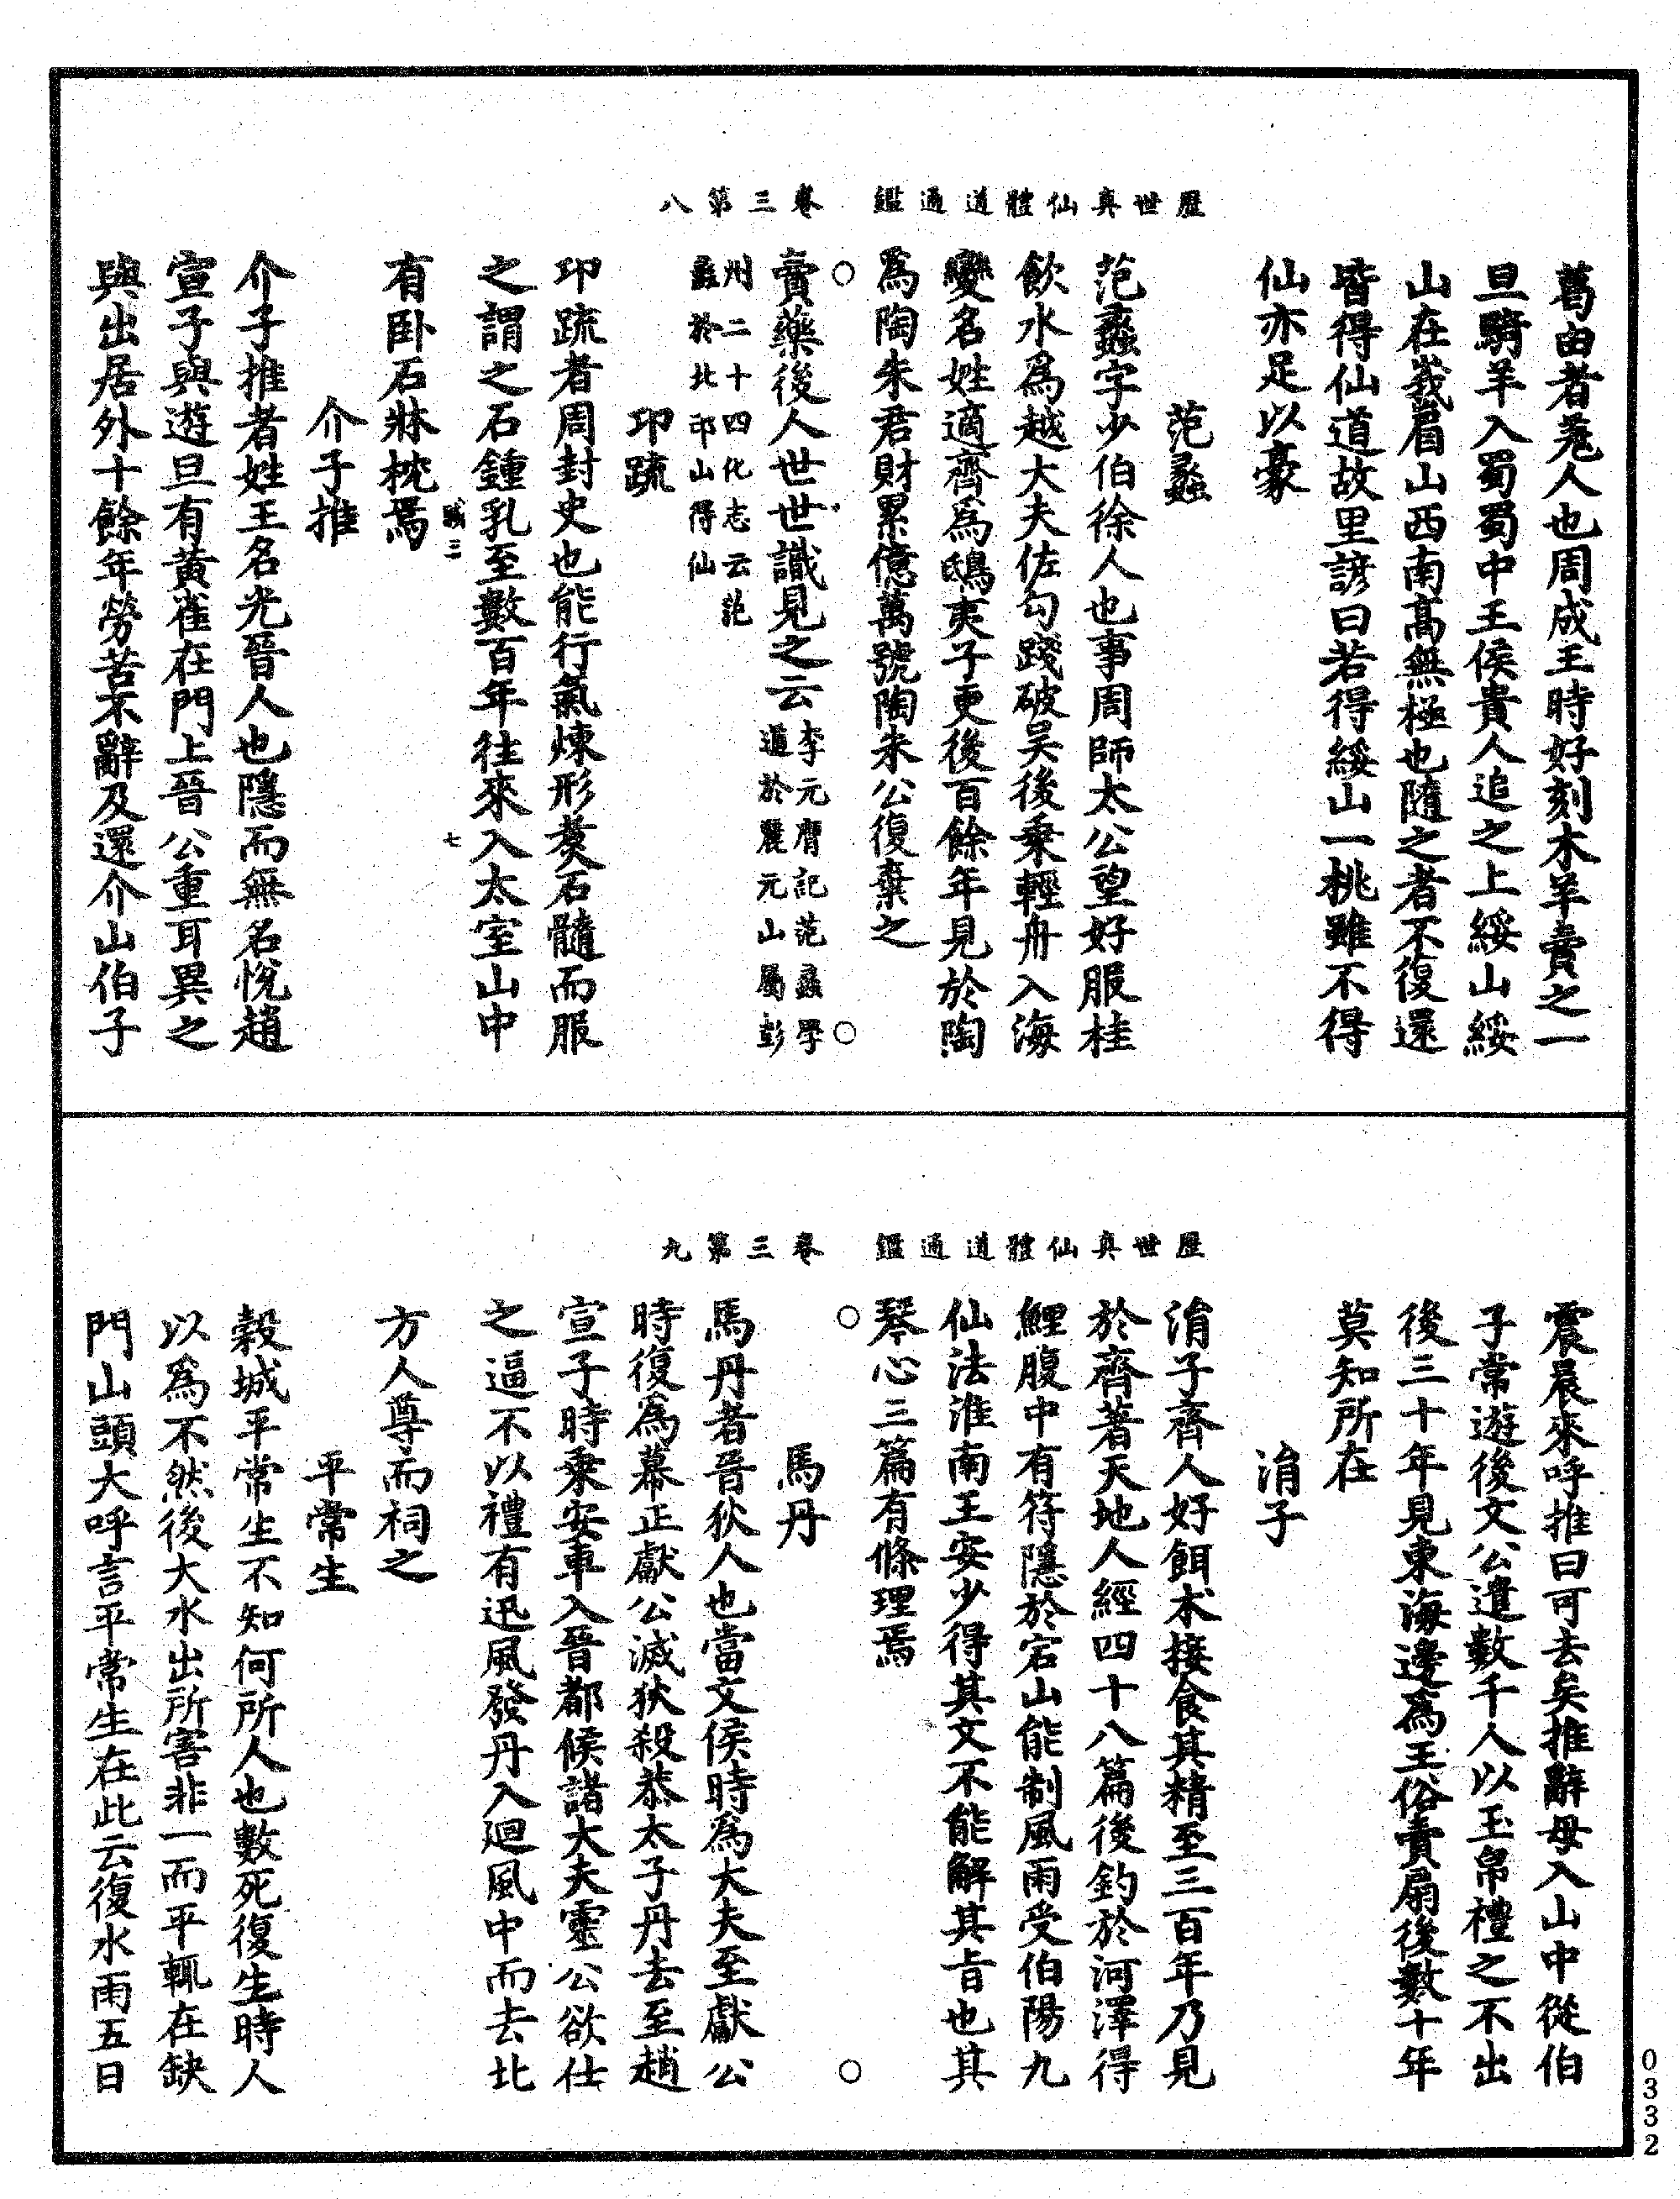 歷世真仙體道通鑑　卷三第八
葛由者羌人也周成王時好刻木羊賣之一
旦騎羊入蜀蜀中王侯貴人追之上綏山綏
山在峩眉山西南髙無極也隨之者不復還
皆得仙道故里諺曰若得綏山一桃雖不得
仙亦足以豪
范蠡
范蠡字少伯徐人也事周師太公望好服桂
飲水爲越大夫佐勾踐破吴後乗輕舟入海
變名姓適齊爲鴟夷子更後百餘年見於陶
爲陶朱君財累億萬號陶朱公復棄之
賣藥後人世世識見之云李元膺記范蠡學
道於麗元山屬彭
州二十四化志云范
蠡於北邙山得仙
卭疏
卭疏者周封史也能行氣煉形煑石髓而服
之謂之石鍾乳至數百年往來入太室山中
三　七
有卧石牀枕焉
介子推
介子推者姓王名光晉人也隱而無名恱趙
宣子與遊旦有黄雀在門上晉公重耳異之
與出居外十餘年勞苦不辭及還介山伯子
歷世真仙體道通鑑　卷三第九
震晨來呼推曰可去矣推辭母入山中從伯
子常遊後文公遣數千人以玉帛禮之不出
後三十年見東海邊爲王俗賣扇後數十年
莫知所在
涓子
涓子齊人好餌术接食其精至三百年乃見
於齊著天地人經四十八篇後釣於河澤得
鯉腹中有符隱於宕山能制風雨受伯陽九
仙法淮南王安少得其文不能解其旨也其
琴心三篇有條理焉
馬丹
馬丹者晉狄人也當文侯時爲大夫至獻公
時復爲幕正獻公滅狄殺恭太子丹去至趙
宣子時乗安車入晉都候諸大夫靈公欲仕
之逼不以禮有迅風發丹入廻風中而去北
方人尊而祠之
平常生
榖城平常生不知何所人也數死復生時人
以爲不然後大水出所害非一而平輒在缺
門山頭大呼言平常生在此云復水雨五日
0332